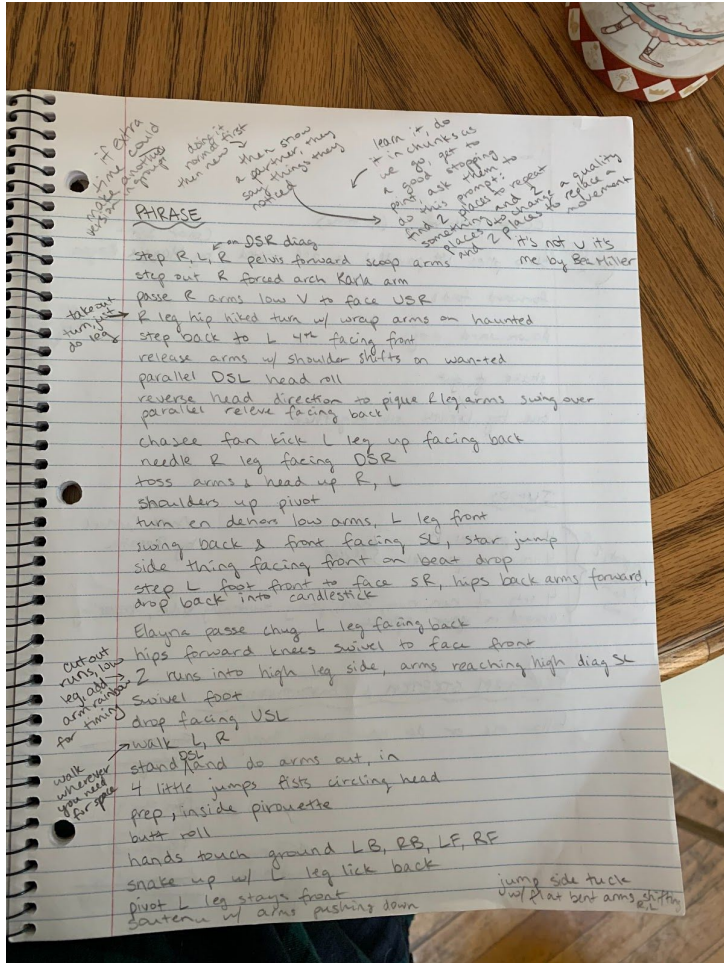 if extra
time could
make another
version in group
doing it
normal first
then new
then show
a partner, they
say things they
noticed
learn it, do
it in chunks as
we go, get to
a good stopping
point ask them to
do this prompt:
find 2 places to repeat
something and 2
places to change a quality
and 2 places to replace a
movement
PHRASE
it's not u it's
me by Bea Miller
on DSR diag
step R, L, R pelvis forward scoop arms
step out R forced arch Karla arm
passe R arms low V to face USR
take out
turn, just
do leg
R leg hip hiked turn w/ wrap arms on haunted
step back to L 4th facing front
release arms w/ shoulder shifts on wan-ted
parallel DSL head roll
reverse head direction to pique R leg arms swing over
parallel releve facing back
chasee fan kick L leg up facing back
needle R leg facing DSR
toss arms & head up R, L
shoulders up pivot
turn en dehors low arms, L leg front
swing back & front facing SL, star jump
side thing facing front on beat drop
step L foot front to face SR, hips back arms forward,
drop back into candlestick
Elayna passe chug L leg facing back
hips forward knees swivel to face front
cut out
runs, low
leg, add
arm rainbow
for timing
2 runs into high leg side, arms reaching high diag SL
swivel foot
drop facing USL
walk L, R
walk
wherever
you need
for space
stand DSL and do arms out, in
4 little jumps fists circling head
prep, inside pirouette
butt roll
hands touch ground LB, RB, LF, RF
snake up w/ L leg lick back
pivot L leg stays front
soutenu w/ arms pushing down
jump side tuck
w/ flat bent arms shifting
R, L